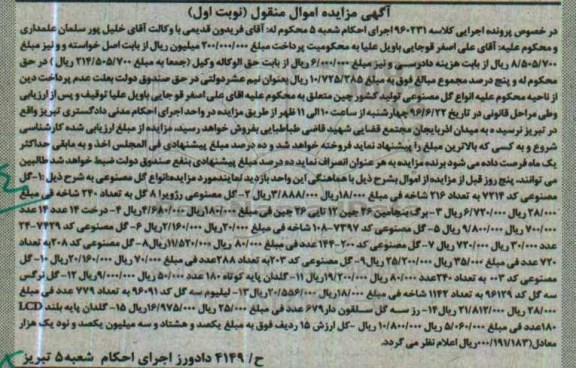 آگهی مزایده اموال منقول (نوبت اول)
در خصوص پرونده اجرایی کلاسه ۹۶۰۲۳۱ اجرای احکام شعبه ۵ محکوم له: آقای فریدون قدیمی با وکالت آقای خلیل پور سلمان علمداری
و محکوم علیه: آقای علی اصغر قوجایی باویل علیا به محکومیت پرداخت مبلغ ۲۰۰/۰۰۰/۰۰۰ میلیون ریال از بابت اصل خواسته و و نیز مبلغ
۸/۵۰۵/۷۰۰ ریال از بابت هزینه دادرسی و نیز مبلغ ۶/۰۰۰/۰۰۰ ریال از بابت حق الوکاله وکیل (جمعا به مبلغ ۲۱۴/۵۰۵/۷۰۰ ریال ) در حق
محکوم له و پنج درصد مجموع مبالغ فوق به مبلغ ۱۰/۷۲۵/۲۸۵ ریال بعنوان نیم عشر دولتی در حق صندوق دولت بعلت عدم پرداخت دین
از ناحیه محکوم علیه انواع گل مصنوعی تولید کشور چین متعلق به محکوم علیه اقای علی اصغر قوجایی باویل علیا توقیف و پس از ارزیابی
وطی مراحل قانونی در تاریخ ۹۶/۶/۲۲ چهارشنبه از ساعت ۱۰ الی ۱۱ ظهر از طریق مزایده در واحد اجرای احکام مدنی دادگستری تبریز واقع
در تبریز نرسیده به میدان اذربایجان مجتمع قضایی شهید قاضی طباطبایی بفروش خواهد رسید، مزایده از مبلغ ارزیابی شده کارشناسی
شروع و به کسی که بالاترین مبلغ را پیشنهاد نماید فروخته خواهد شد و ده درصد مبلغ پیشنهادی فی المجلس اخذ و به مابقی حداکثر
یک ماه فرصت داده می شود برنده مزایده به هر عنوان انصراف نماید ده درصد مبلغ پیشنهادی بنفع صندوق دولت ضبط خواهد شد طالبین
می توانند، پنج روز قبل از مزایده از اموال بشرح ذیل با هماهنگی این واحد بازدید نمایند مورد مزایده انواع گل مصنوعی به شرح ذیل ۱-گل
مصنوعی کد ۷۲۱۴ به تعداد ۲۱۶ شاخه فی مبلغ ۱۸/۰۰۰ریال ۳/۸۸۸/۰۰۰ ریال ۲-گل مصنوعی رزوپرا ۸ گل به تعداد ۲۴۰ شاخه فی مبلغ
۲۸/۰۰۰ ریال ۶/۷۲۰/۰۰۰ ریال ۳-برگ بنجامین ۲۶ جین ۱۲ تایی ۲۶ جین فی مبلغ ۱۸۰/۰۰۰ریال ۴/۶۸۰/۰۰۰ریال ۴-درخت ۱۴ عدد ۱۴ عدد
۷۰۰/۰۰۰ ریال ۹/۸۰۰/۰۰۰ ریال ۵-گل مصنوعی کد ۷۳۹۷-۱۰۸ شاخه فی مبلغ ۲۰/۰۰۰ریال ۲/۱۶۰/۰۰۰ریال ۶-گل مصنوعی کد ۷۳۲۹-۲۴
عدد ۳۰/۰۰۰ ریال ۷۲۰/۰۰۰ ریال ۷-گل مصنوعی کد ۲۰۰-۱۴۴ عدد فی مبلغ ۸۰/۰۰۰ ریال ۱۱/۵۲۰/۰۰۰ریال۸-گل مصنوعی کد ۲۰۸ به تعداد
۷۲۰ عدد فی مبلغ ۳۵/۰۰۰ ریال ۲۵/۲۰۰/۰۰۰ریال۹-گل مصنوعی کد ۲۰۳ به تعداد ۲۸۸ عدد فی مبلغ ۷۰/۰۰۰ ریال ۲۰/۱۶۰/۰۰۰ریال ۱۰-گل
مصنوعی کد ۰۰۳ به تعداد ۲۴۰ عدد ۸۰/۰۰۰ ریال ۱۹/۲۰۰/۰۰۰ریال ۱۱-گلدان پایه کوتاه ۱۸۰ عدد ۵۰/۰۰۰ ریال ۹/۰۰۰/۰۰۰ریال ۱۲-گل نرگس
سه گل کد ۹۶۱۲۹ به تعداد ۱۱۴۲ شاخه فی مبلغ ۱۸/۰۰۰ریال ۲۰/۵۵۶/۰۰۰ ریال ۱۳- لیلیوم سه گل کد ۹۶۰۹۱ به تعداد ۷۷۹ عدد فی مبلغ
۲۸/۰۰۰ ریال ۲۱/۸۱۲/۰۰۰ ریال۱۴-رز سه گل سلفون دار ۶۷۹ عدد فی مبلغ ۲۵/۰۰۰ ریال ۱۶/۹۷۵/۰۰۰ریال ۱۵- گلدان پایه بلند LCD
۱۸۰عدد فی مبلغ ۵/۰۶۰/۰۰۰ ریال ۱۰/۸۰۰/۰۰۰ ریال -کل ارزش ۱۵ ردیف فوق به مبلغ یکصد و هشتاد و سه میلیون یکصد و نود یک هزار
معادل(۱۸۳/۱۹۱/۰۰۰)ریال اعلام نظر می گردد.
ح/ ۴۱۴۹ دادورز اجرای احکام شعبه ۵ تبریز